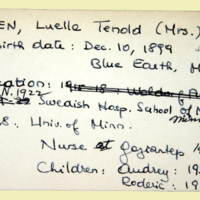 EN, Luella Tenold (Mrs.)
irth date: Dec. 10, 1899
Blue Earth, M
ation:
N. 1922 Swedish Hosp. School of N
S.: Univ. of Minn.
Nurse at Gaziantep 19
Children: Audrey: 19
Roderic: 19